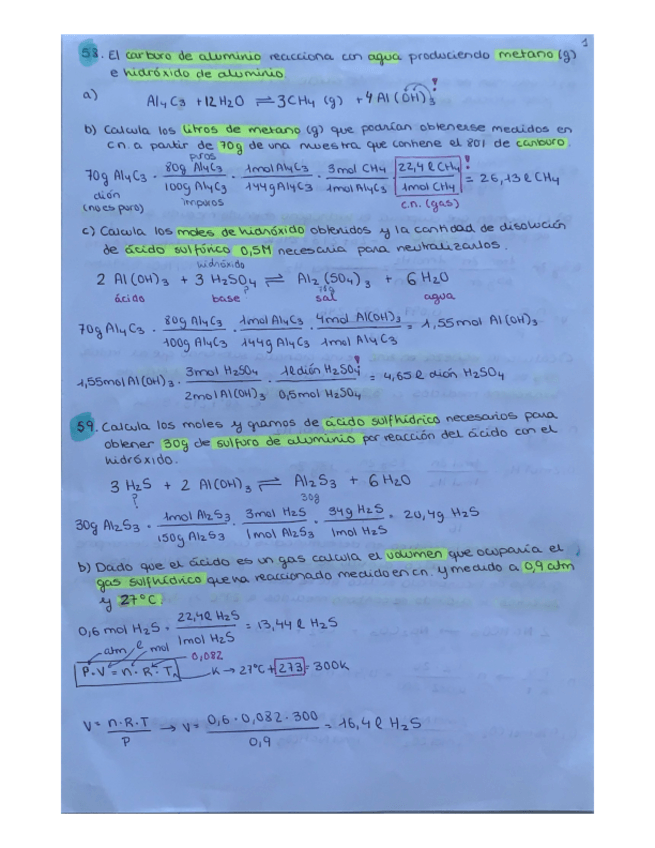 1
58. El carburo de aluminio reacciona con agua produciendo metano (g)
e hidróxido de aluminio.
a) Al₄C₃ + 12H₂O ⇌ 3CH₄ (g) + 4Al(OH)₃
b) Calcula los litros de metano (g) que podrían obtenerse medidos en
c.n. a partir de 70g de una muestra que contiene el 80% de carburo.
puros
70g Al₄C₃ · 80g Al₄C₃ / 100g Al₄C₃ · 1mol Al₄C₃ / 144g Al₄C₃ · 3mol CH₄ / 1mol Al₄C₃ · 22,4 l CH₄ / 1mol CH₄ = 26,13 l CH₄
dión impuros c.n. (gas)
(no es puro)
c) Calcula los moles de hidróxido obtenidos y la cantidad de disolución
de ácido sulfúrico 0,5M necesaria para neutralizarlos.
hidróxido
2 Al(OH)₃ + 3 H₂SO₄ ⇌ Al₂(SO₄)₃ + 6 H₂O
ácido base sal agua
70g Al₄C₃ · 80g Al₄C₃ / 100g Al₄C₃ · 1mol Al₄C₃ / 144g Al₄C₃ · 4mol Al(OH)₃ / 1mol Al₄C₃ = 1,55mol Al(OH)₃
1,55mol Al(OH)₃ · 3mol H₂SO₄ / 2mol Al(OH)₃ · 1l dión H₂SO₄ / 0,5mol H₂SO₄ = 4,65 l dión H₂SO₄
59. Calcula los moles y gramos de ácido sulfhídrico necesarios para
obtener 30g de sulfuro de aluminio por reacción del ácido con el
hidróxido.
3 H₂S + 2 Al(OH)₃ ⇌ Al₂S₃ + 6 H₂O
? 30g
30g Al₂S₃ · 1mol Al₂S₃ / 150g Al₂S₃ · 3mol H₂S / 1mol Al₂S₃ · 34g H₂S / 1mol H₂S = 20,4g H₂S
b) Dado que el ácido es un gas calcula el volumen que ocuparía el
gas sulfhídrico que ha reaccionado medido en c.n. y medido a 0,9 atm
y 27°C.
0,6 mol H₂S · 22,4 l H₂S / 1mol H₂S = 13,44 l H₂S
atm l mol 0,082
P·V = n·R·T K → 27°C + 273 = 300K
V = n·R·T / P → V = 0,6 · 0,082 · 300 / 0,9 = 16,4 l H₂S